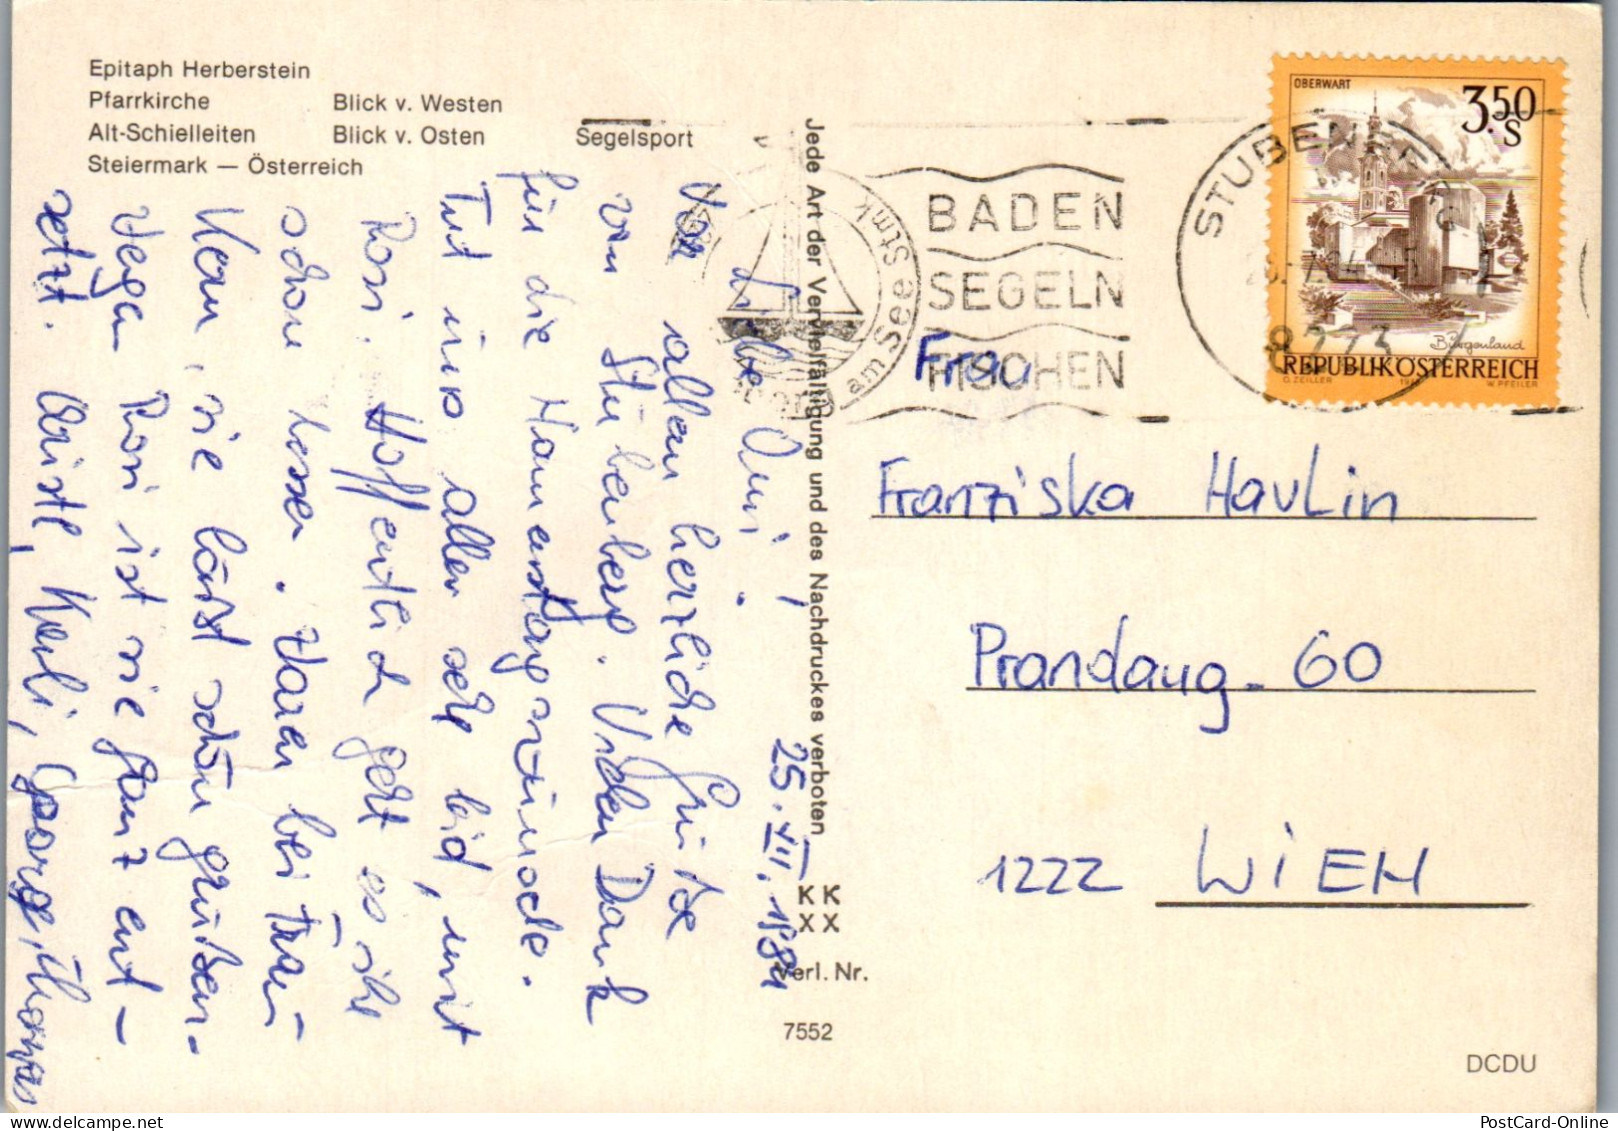 Epitaph Herberstein
Pfarrkirche Blick v. Westen
Alt-Schielleiten Blick v. Osten Segelsport
Steiermark — Österreich
Jede Art der Vervielfältigung und des Nachdruckes verboten
KK
XX
Verl. Nr.
7552
DCDU
am See Stmk
BADEN
SEGELN
FISCHEN
STUBENBERG
8223
OBERWART
3.50
S
Burgenland
REPUBLIK ÖSTERREICH
O. ZEILLER W. PFEILER
Frau
Franziska Havlin
Prandaug. 60
1222 WIEN
25. VII. 1984
Liebe Omi!
Von allen herzliche Grüße
von Stubenberg. Vielen Dank
für die Namenstagswünsche.
Tut uns allen sehr leid, mit
Rosi. Hoffentlich geht es ihr
schon besser. Waren bei Frau
Kom, sie läßt schön grüßen.
Wegen Rosi ist sie ganz ent-
setzt. Christl, Karli, George, Thomas